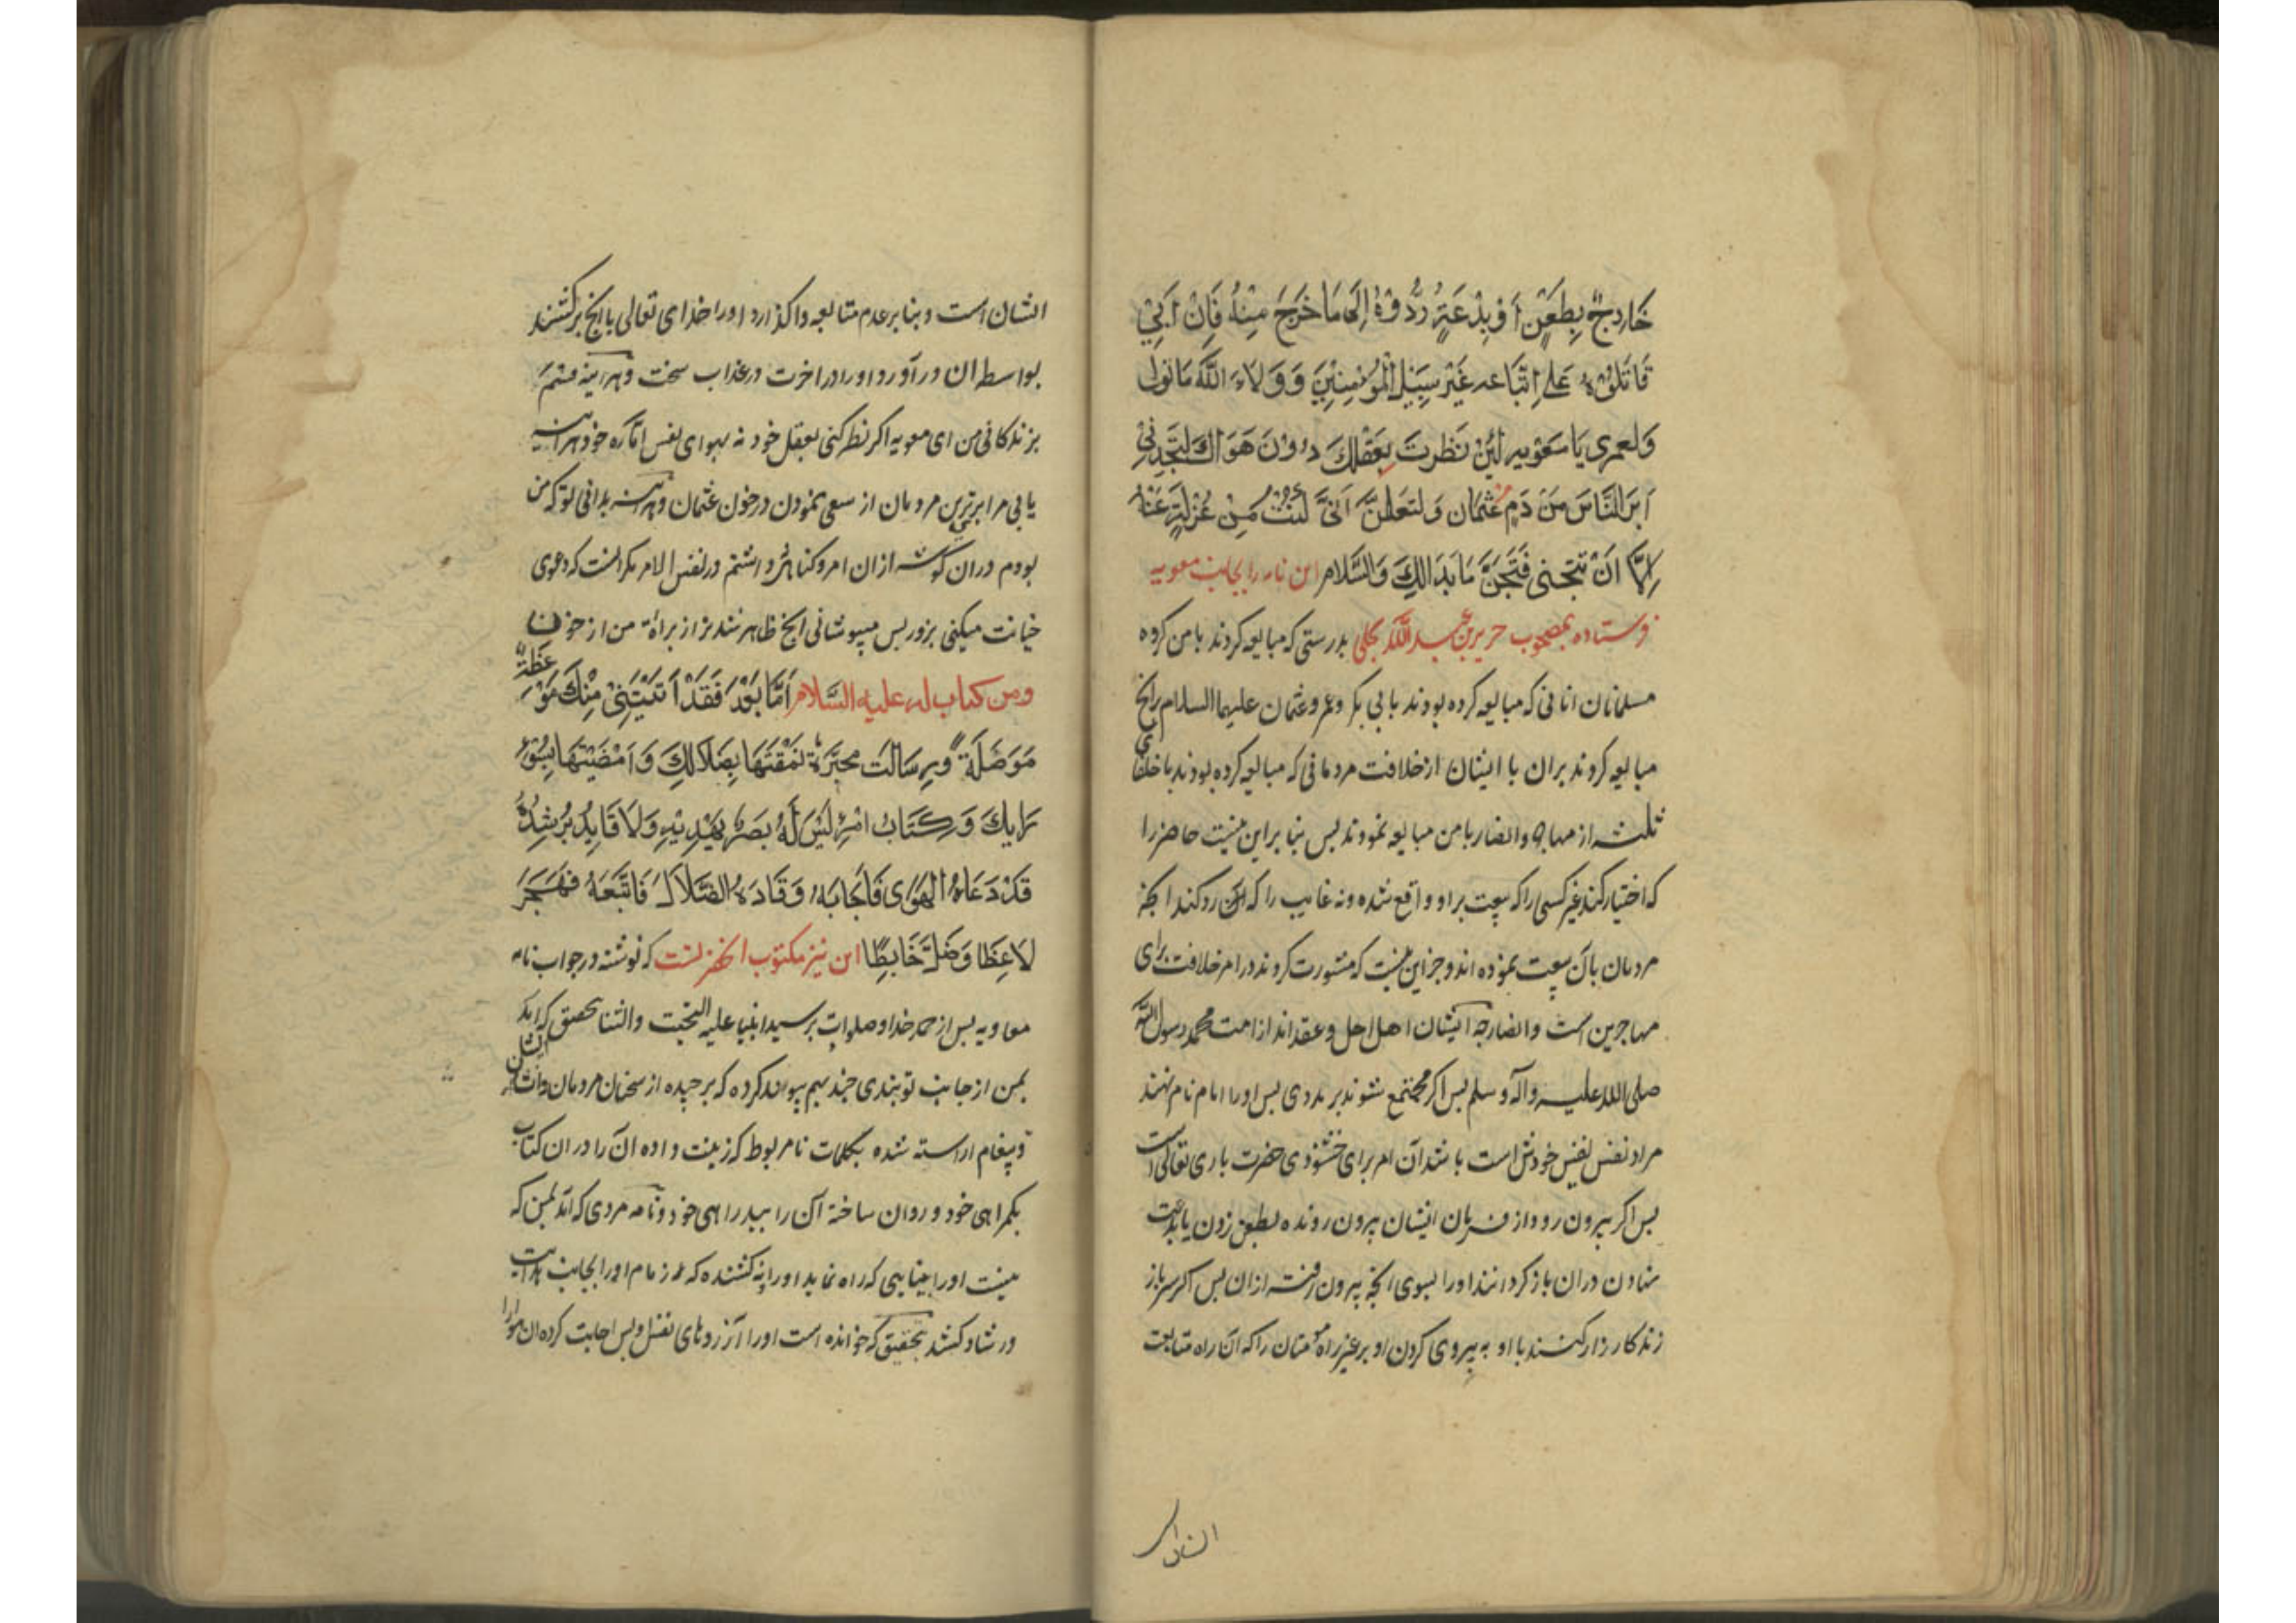 خَارِجٌ بِطَعْنٍ اَوْ بِدْعَةٍ رُدُّوْهُ اِلَى مَا خَرَجَ مِنْهُ فَاِنْ اَبٰى
قَاتَلُوْهُ عَلَى اِتِّبَاعِهِ غَيْرَ سَبِيْلِ الْمُؤْمِنِيْنَ وَوَلَاءُ اللَّهُ مَا تَوَلَّى
وَلعمرى يَا مَعٰويه لَئِنْ نَظَرتَ بِعَقْلِكَ دُوْنَ هَوَاكَ لَتَجِدَنِّىْ
اَبَرَ النَّاسِ مِنْ دَمِ عُثْمَان وَلتَعْلَمَنَّ اَنِّىْ كُنْتُ مِنْ عُزْلَةٍ عَنْهُ
اِلَّا اَنْ تَتَجَنى فَتَجَنَّ مَا بَدَا لَكَ وَالسَّلَام این نامه را بجانب معویه
فرستاده بمصحوب جریر بن عبد اللّه بجلی بدرستی که مبایعه کردند با من کروه
مسلمانان انانی که مبایعه کرده بودند بابی بکر و عمر و عثمان علیهما السلام برانچ
مبایعه کردند بران با ایشان از خلافت مردمانی که مبایعه کرده بودند با خلفای
ثلثه از مهاجر و انصار با من مبایعه نمودند بس بنا براین نیست حاضر را
که اختیار کند غیر کسی را که بیعت براو واقع شده و نه غایب را که رد کند انچه
مردمان بآن بیعت نموده اند و جز این نیست که مشورت کردند در امر خلافت برای
مهاجرین است و انصار چه ایشان اهل حل و عقد اند از امت محمد رسول اللّه
صلی الله علیه وآله و سلم بس اکر مجتمع شوند بر مردی بس اورا امام نام نهند
مراد نفس نفیس خودش است باشد آن امر برای خشنودی حضرت باری تعالی است
بس اکر بیرون رود از فرمان ایشان بیرون رونده بطعن زدن یا بدعت
نهادن دران باز کردانند اورا بسوی انچه بیرون رفته ازان بس اکر سر باز
زند کارزار کنند با او به پیروی کردن او بر غیر راه مومنان را که آن راه متابعت
ایشان است و بنا بر عدم متابعه واکذارد اورا خدای تعالی با انچ برکشتند
بواسطه ان و درآورد اورا در اخرت در عذاب سخت و هر اینه قسم
بزندکانی من ای معویه اکر نظر کنی بعقل خود نه بهوای نفس امّاره خود هر اینه
یابی مرا برترین مردمان از سعی نمودن در خون عثمان و هر اینه بدانی تو که من
بودم دران کوشه ازان امر و کناهی نداشتم در نفس الامر مکر انست که دعوی
خیانت میکنی بزور بس میپوشانی انچ ظاهر شد بر از براءة من از خون
ومن کتاب له علیه السَّلام اَمَّا بَعْدَ فَقَدْ اَتَتْنِىْ مِنْكَ مَوْعِظَةٌ
مَوَصَّلَةٌ وَرِسَالَت مُحبَّرَةٌ نَمَّقْتَهَا بِضَلَالِكَ وَاَمْضَيْتَهَا بِسُوْءِ
رَايِكَ وَكِتَابُ امْرِئٍ لَيْسَ لَهُ بَصَرٌ يَهْدِيْهِ وَلَا قَايِدٌ يُرْشِدُهُ
قَدْ دَعَاهُ الْهَوَى فَاَجَابَهُ وَقَادَهُ الضَّلَالُ فَاتَّبَعَهُ فَهَجَرَ
لَاغِطًا وَضَلَّ خَابِطًا این نیز مکتوب انحضرتست که نوشته در جواب نامه
معاویه بس از حمد خدا و صلوات بر سید انبیا علیه التحیت والثنا بتحقیق که آمد
بمن از جانب تو پندی چند بهم پیوند کرده که برچیده از سخنان مردمان
و پیغام اراسته شده بکلمات نامربوط که زینت داده ان را دران کتاب
بکمراهی خود و روان ساخته آن را ببد راهی خود و نامه مردی که آمد بمن که
نیست اورا بینایی که راه نماید اورا و نه کشنده که زمام اورا بجانب هدایت
و رشاد کشد بتحقیق که خوانده است اورا آرزوهای نفس و بس اجابت کرده ان هوارا